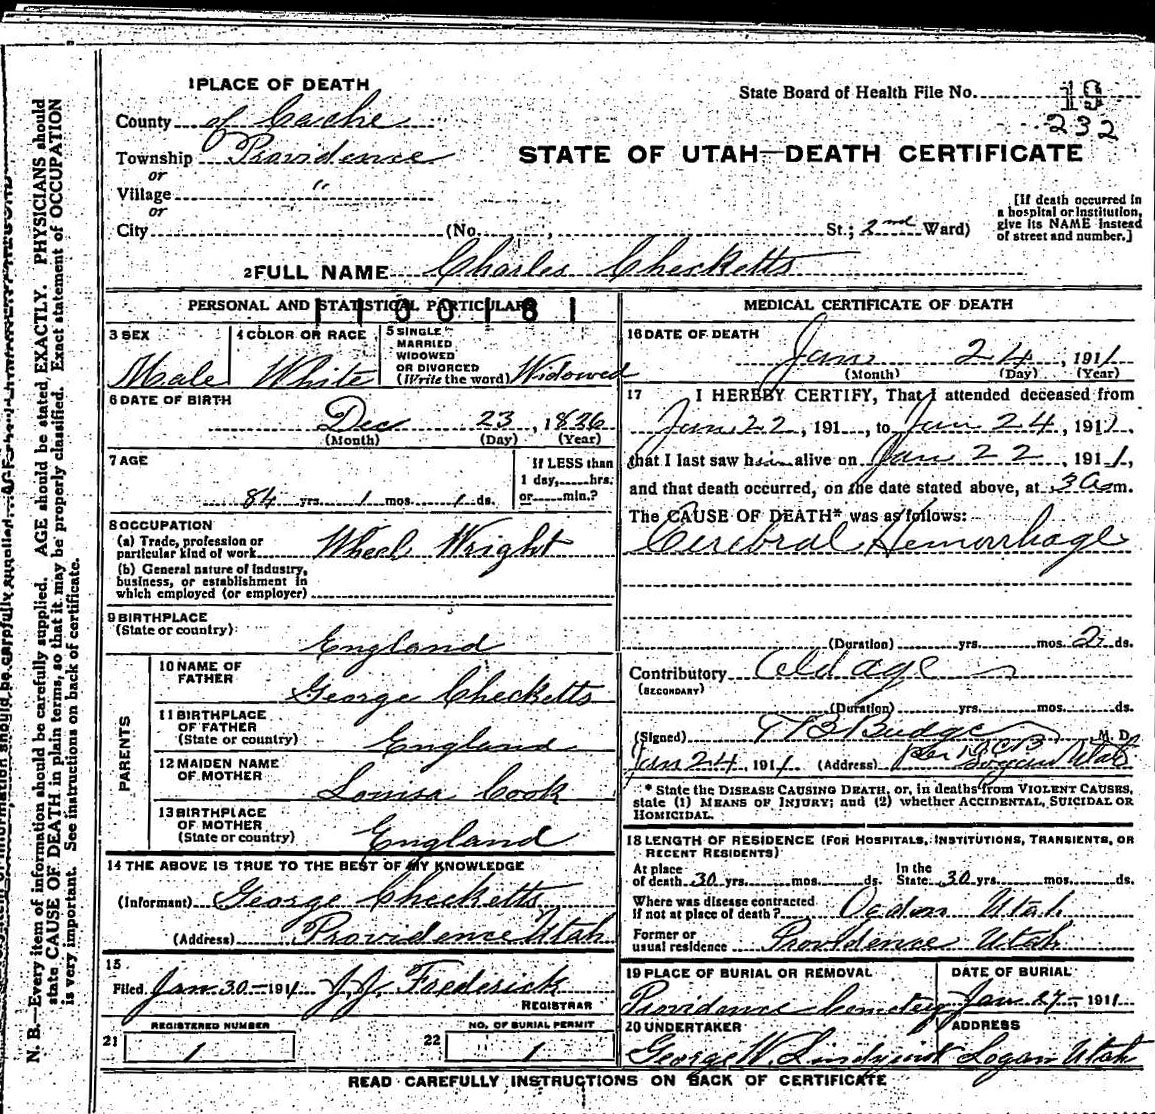 1 PLACE OF DEATH
County of Cache
Township Providence
or
Village "
or
City (No. , St.; 2nd Ward)
State Board of Health File No. 19
232
STATE OF UTAH—DEATH CERTIFICATE
[If death occurred in
a hospital or institution,
give its NAME instead
of street and number.]
2 FULL NAME Charles Checketts
PERSONAL AND STATISTICAL PARTICULARS
1100181
3 SEX
Male
4 COLOR OR RACE
White
5 SINGLE,
MARRIED
WIDOWED
OR DIVORCED
(Write the word) Widowed
6 DATE OF BIRTH
Dec 23, 1826
(Month) (Day) (Year)
7 AGE
84 yrs. 1 mos. 1 ds.
If LESS than
1 day, hrs.
or min.?
8 OCCUPATION
(a) Trade, profession or
particular kind of work Wheel Wright
(b) General nature of Industry,
business, or establishment in
which employed (or employer)
9 BIRTHPLACE
(State or country)
England
PARENTS
10 NAME OF
FATHER
George Checketts
11 BIRTHPLACE
OF FATHER
(State or country)
England
12 MAIDEN NAME
OF MOTHER
Louisa Cook
13 BIRTHPLACE
OF MOTHER
(State or country)
England
14 THE ABOVE IS TRUE TO THE BEST OF MY KNOWLEDGE
(Informant) George Checketts
(Address) Providence Utah
15
Filed Jan 30 - 1911 J. J. Frederick
REGISTRAR
21 REGISTERED NUMBER
1
22 NO. OF BURIAL PERMIT
1
MEDICAL CERTIFICATE OF DEATH
16 DATE OF DEATH
Jan 24, 1911
(Month) (Day) (Year)
17 I HEREBY CERTIFY, That I attended deceased from
Jan 22, 191 , to Jan 24, 1911,
that I last saw him alive on Jan 22, 1911,
and that death occurred, on the date stated above, at 3 a m.
The CAUSE OF DEATH* was as follows:
Cerebral Hemorrhage
(Duration) yrs. mos. 2 ds.
Contributory Old age
(SECONDARY)
(Duration) yrs. mos. ds.
(Signed) T B Budge M. D.
Jan 24, 1911 (Address) per Utah
* State the DISEASE CAUSING DEATH, or, in deaths from VIOLENT CAUSES,
state (1) MEANS OF INJURY; and (2) whether ACCIDENTAL, SUICIDAL OR
HOMICIDAL.
18 LENGTH OF RESIDENCE (FOR HOSPITALS, INSTITUTIONS, TRANSIENTS, OR
RECENT RESIDENTS)
At place
of death 30 yrs. mos. ds. In the
State 30 yrs. mos. ds.
Where was disease contracted
if not at place of death? Ogden Utah
Former or
usual residence Providence Utah
19 PLACE OF BURIAL OR REMOVAL
Providence Cemetery
DATE OF BURIAL
Jan 27 - 1911
20 UNDERTAKER
George W. Lindquist
ADDRESS
Logan Utah
READ CAREFULLY INSTRUCTIONS ON BACK OF CERTIFICATE
N. B.—Every item of information should be carefully supplied. AGE should be stated EXACTLY. PHYSICIANS should
state CAUSE OF DEATH in plain terms, so that it may be properly classified. Exact statement of OCCUPATION
is very important. See instructions on back of certificate.